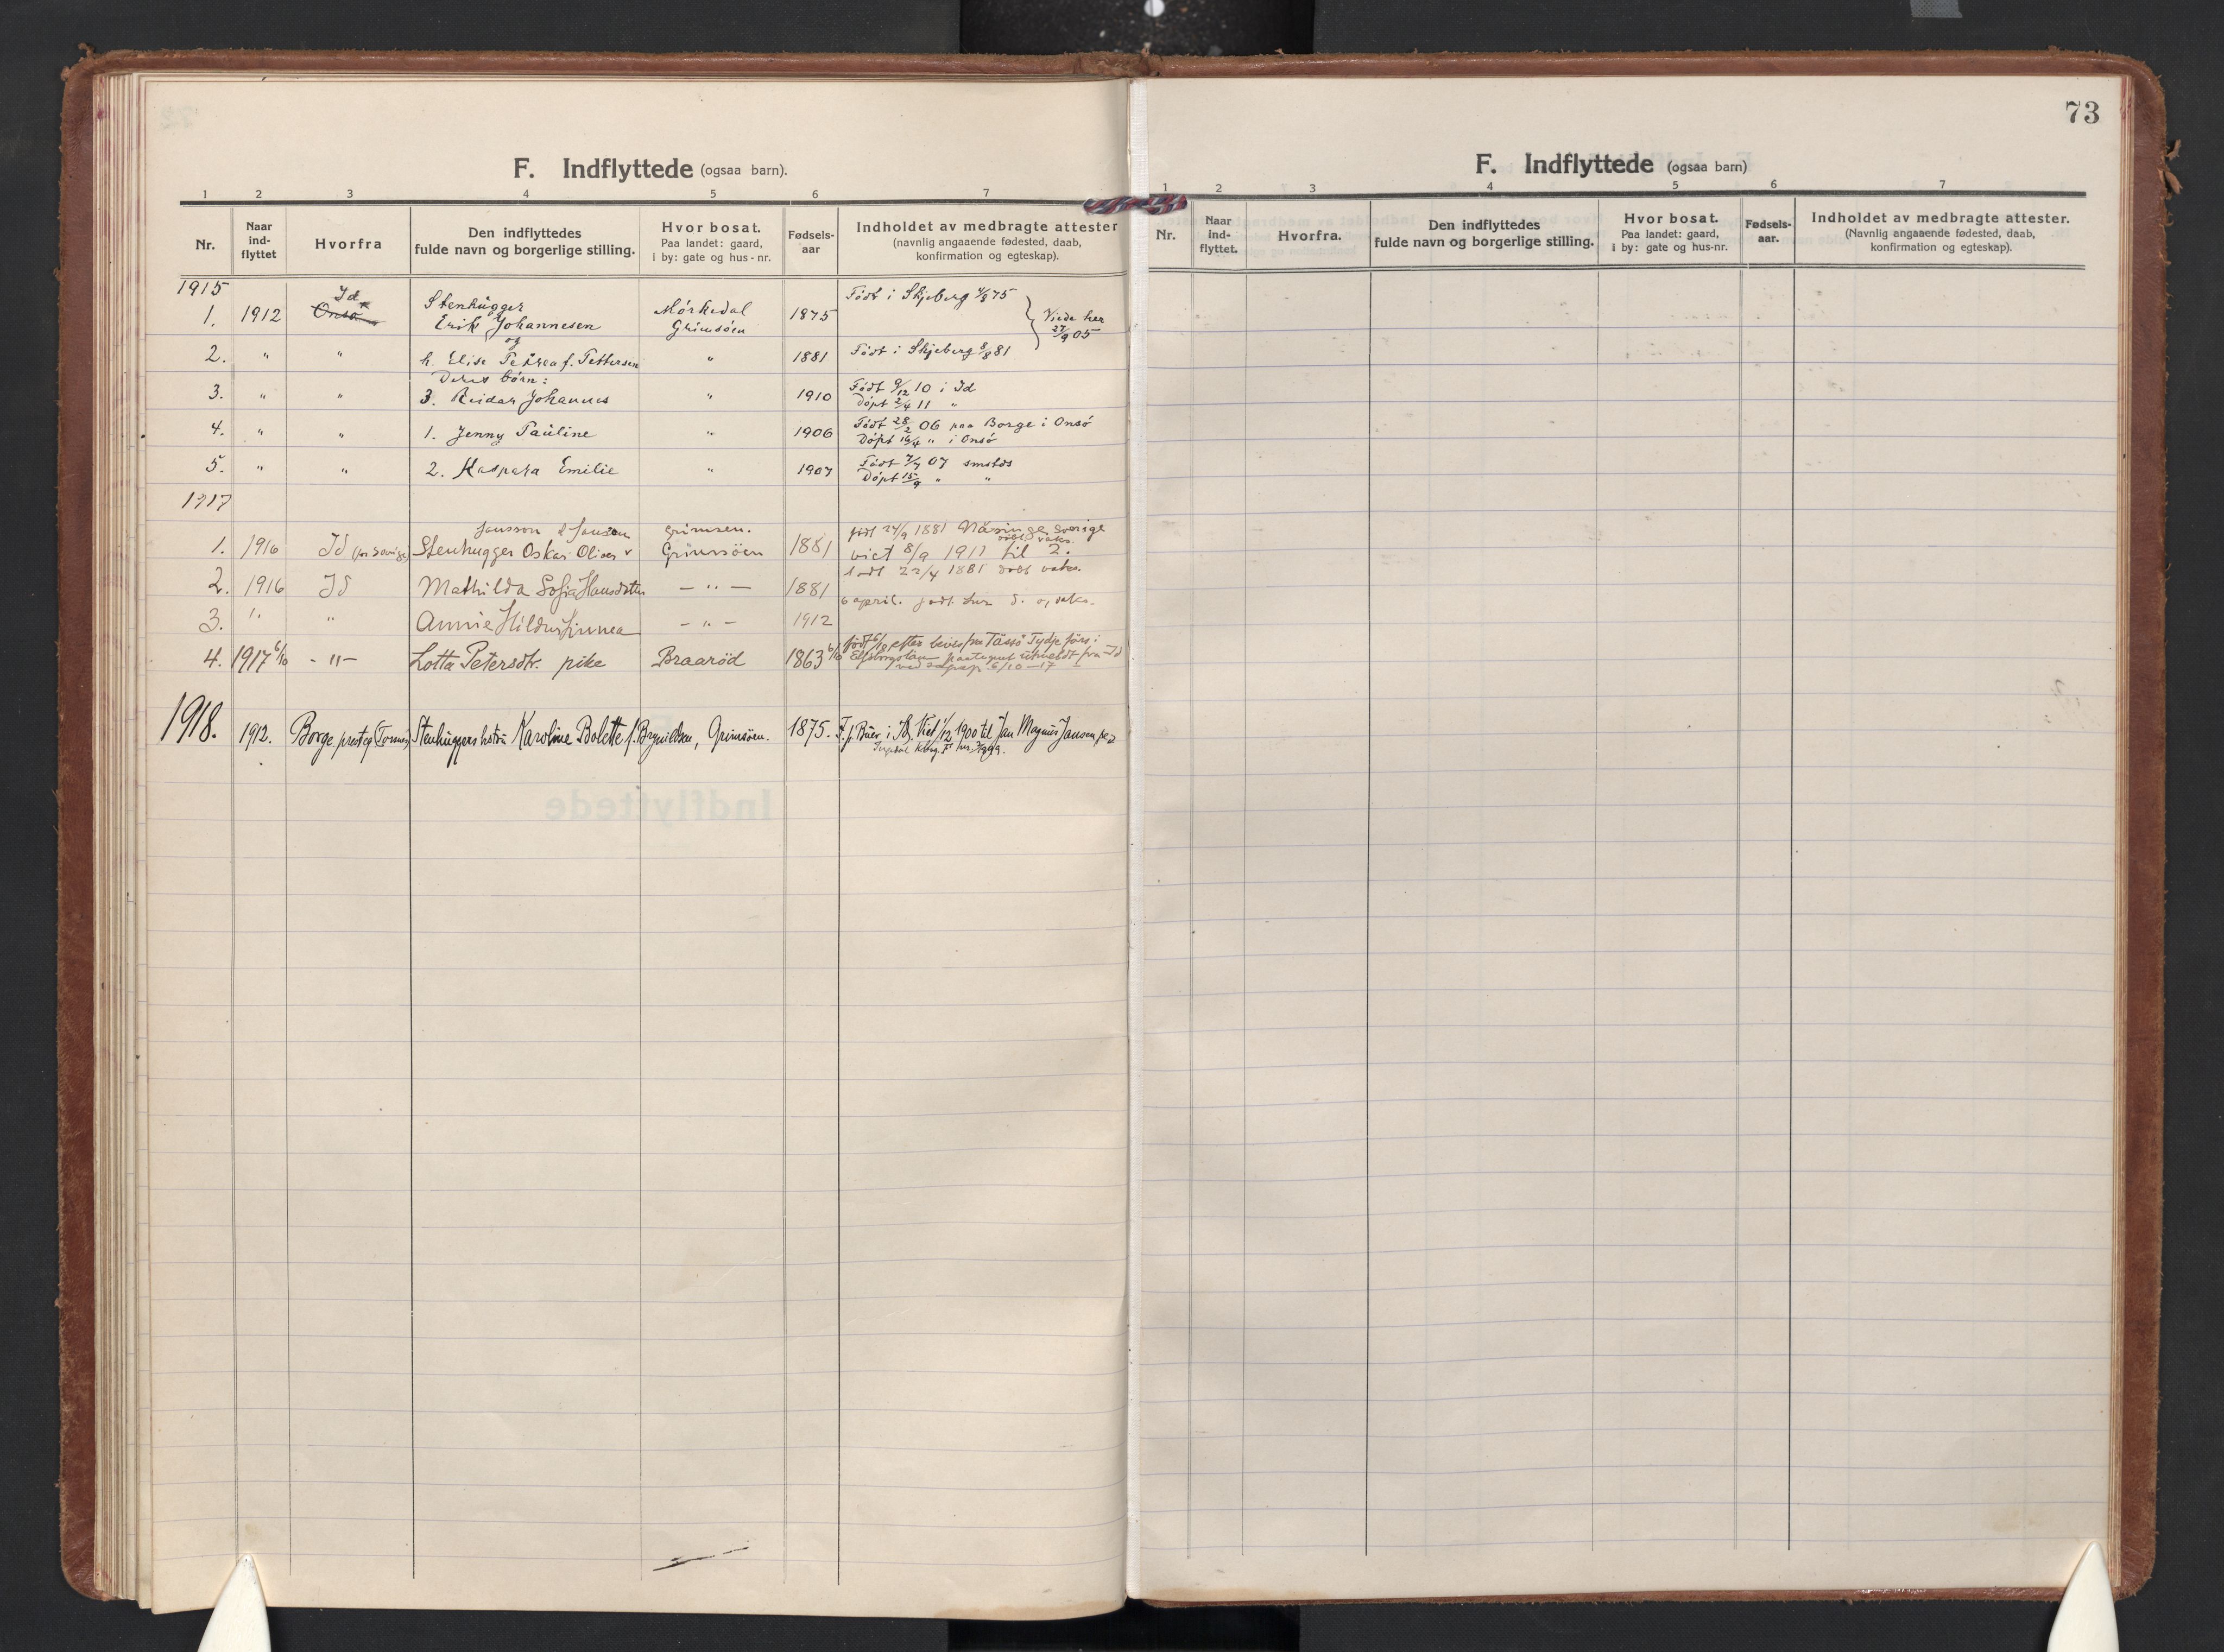 F. Indflyttede (ogsaa barn).
1 2 3 4 5 6 7
Nr.
Naar ind-flyttet
Hvorfra
Den indflyttedes fulde navn og borgerlige stilling.
Hvor bosat. Paa landet: gaard, i by: gate og hus-nr.
Fødsels-aar
Indholdet av medbragte attester (navnlig angaaende fødested, daab, konfirmation og egteskap).
1915
Id
1. 1912 Onsø Stenhugger Mørkedal 1875 Født i Skjeberg 4/8 75
Erik Johannesen Grimsøen
og
Viede her 27/9 05
2. " " h. Elise Petrea f. Pettersen " 1881 Født i Skjeberg 8/8 81
Deres børn:
3. " " 3. Reidar Johannes " 1910 Født 9/12 10 i Id
Døpt 2/4 11 "
4. " " 1. Jenny Pauline " 1906 Født 28/2 06 paa Borge i Onsö
Døpt 16/4 " i Onsö
5. " " 2. Kaspara Emilie " 1907 Født 7/7 07 smstds
Døpt 15/9 " "
1917
Jansson Grimsen. født 24/9 1881 Näsinge, Sverige
1. 1916 Id Stenhugger Oskar Oliver Grimsöen 1881 viet 8/9 1911 til 2.
født 22/4 1881
2. 1916 Id Mathilda Sofia Hansdatter - " - 1881
6 april.
3. " " Annie Hildur Linnea - " - 1912
4. 1917 6/10 - " - Lotta Petersdtr. pike Braaröd 1863 6/10 født 6/10 efter bevis fra Tässö Tydje
Elfsborgslän utmeldt fra Id
6/10-17
1918. 1912. Borge prestegj. Stenhuggershstru Karoline Bolette f. Brynildsen, Grimsöen. 1875. F. p. Buer i Id. Viet 1/12 1900 til Jan Magnus Jansen
73
F. Indflyttede (ogsaa barn)
1 2 3 4 5 6 7
Nr.
Naar ind-flyttet.
Hvorfra.
Den indflyttedes fulde navn og borgerlige stilling.
Hvor bosat. Paa landet: gaard, i by: gate og hus-nr.
Fødsels-aar.
Indholdet av medbragte attester. (Navnlig angaaende fødested, daab, konfirmation og egteskap).